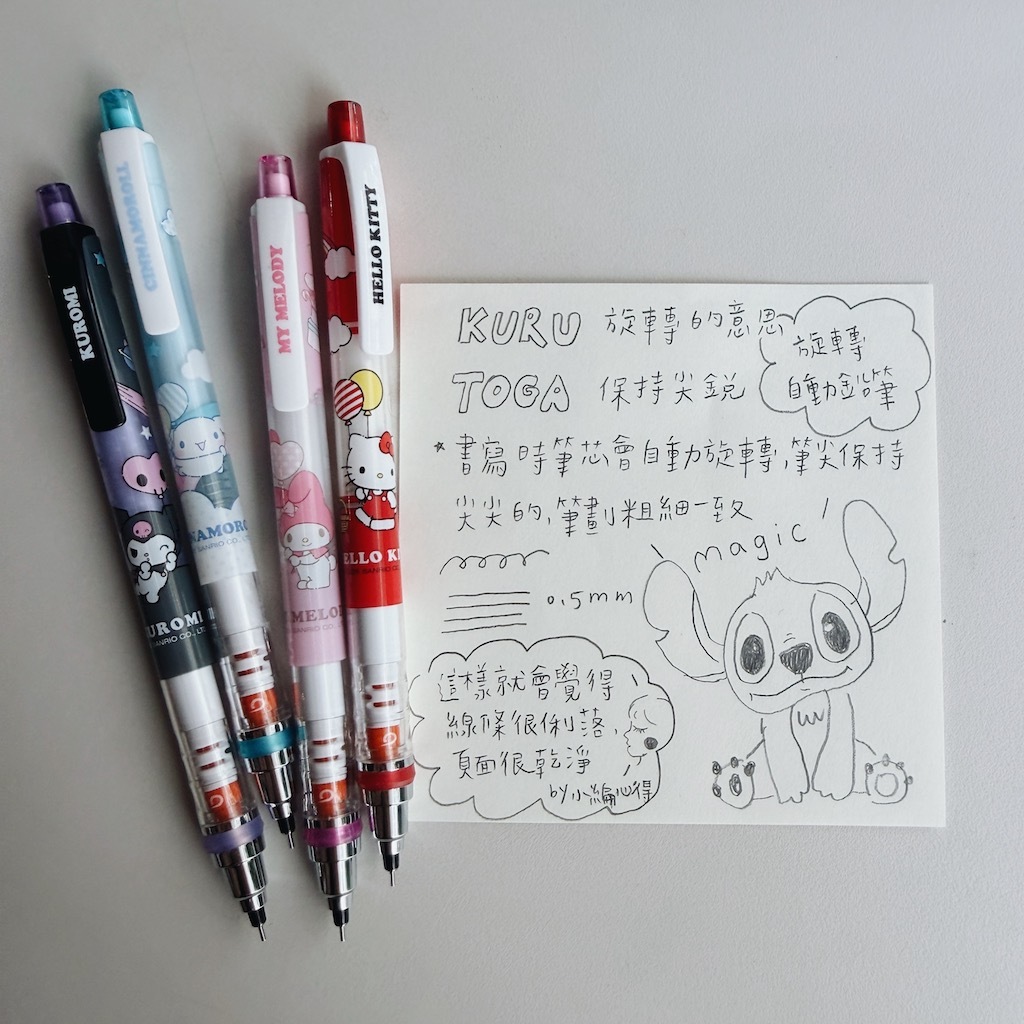 KUROMI
CINNAMOROLL
MY MELODY
HELLO KITTY
KUROMI
SANRIO CO., LT
NAMORO
SANRIO CO.,
MELO
HELLO KI
SANRIO CO.,
KURU 旋轉的意思
TOGA 保持尖銳
旋轉
自動鉛筆
*書寫時筆芯會自動旋轉,筆尖保持
尖尖的,筆劃粗細一致
magic
0.5mm
這樣就會覺得
線條很俐落,
頁面很乾淨
by小編心得